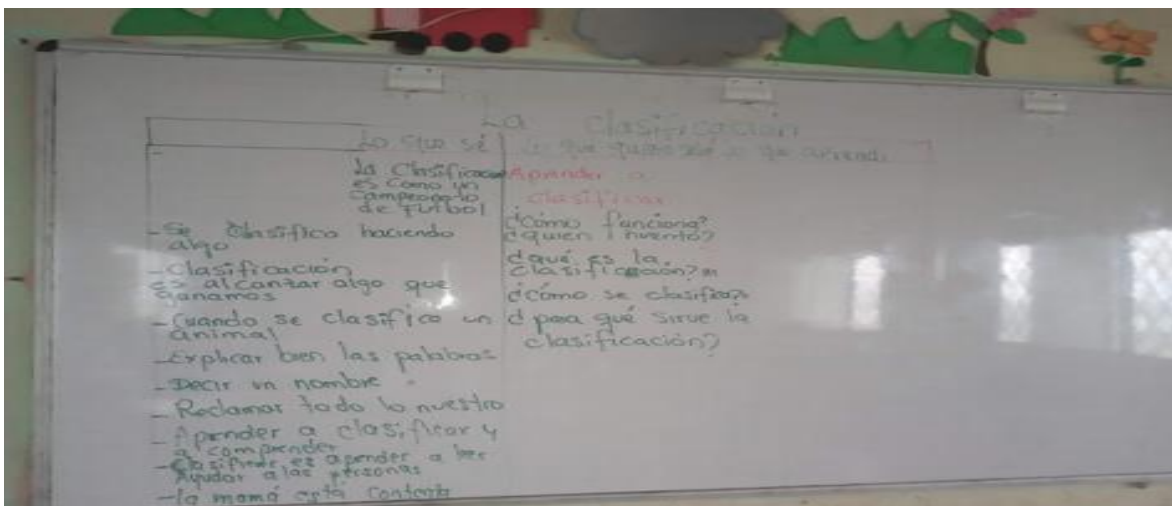 La Clasificación
Lo que sé
Lo que quiero
lo que aprendí
La Clasificación
es como un
campeonato
de futbol
- Se clasifico haciendo
algo
- Clasificación
es alcanzar algo que
ganamos
- Cuando se clasifico un
animal
- Explicar bien las palabras
- Decir un nombre
- Reclamar todo lo nuestro
- Aprender a clasificar y
a comprender
- Clasificar es aprender a leer
Ayudar a las personas
- la mamá está contenta
Aprender a
clasificar
¿Cómo funciona?
¿quien inventó?
¿qué es la
clasificación?
¿Cómo se clasifica?
¿para qué sirve la
clasificación?